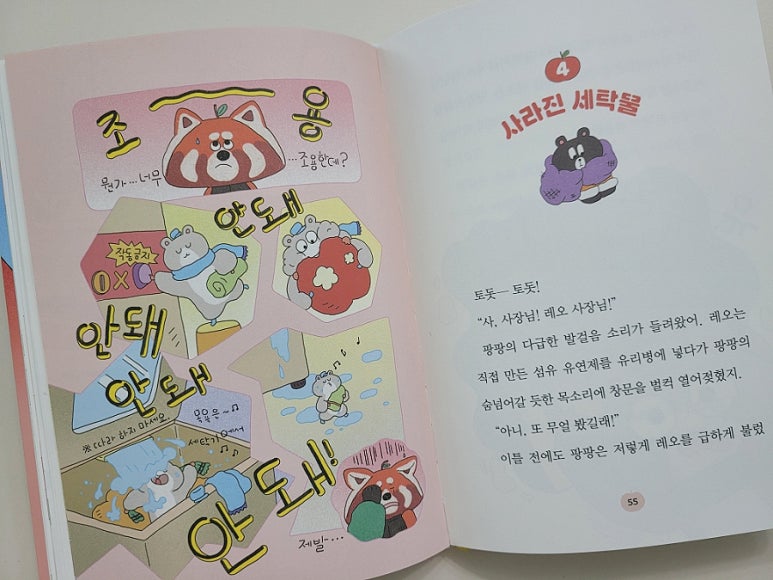 조용
뭔가…너무
…조용한데?
안돼
작동금지
안돼
안돼
※ 따라 하지 마세요.
목욕은~♪
세탁기에서
안돼!
제발…
4
사라진 세탁물
토돗— 토돗!
“사, 사장님! 레오 사장님!”
팡팡의 다급한 발걸음 소리가 들려왔어. 레오는
직접 만든 섬유 유연제를 유리병에 넣다가 팡팡의
숨넘어갈 듯한 목소리에 창문을 벌컥 열어젖혔지.
“아니, 또 무얼 봤길래!”
이틀 전에도 팡팡은 저렇게 레오를 급하게 불렀
55